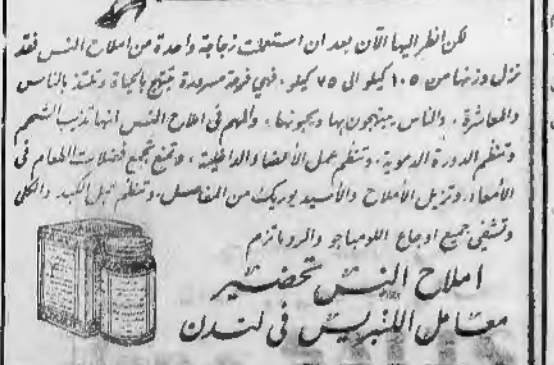 لكن انظر اليها الآن بعد ان استعملت زجاجة واحدة من املاح النس فقد
نزل وزنها من ١٠٥ كيلو الى ٧٥ كيلو ، فهي فرحة مسرورة تبتهج بالحياة وتلتذ بالناس
والمعاشرة ، والناس يبتهجون بها ويحبونها ، والمهم في املاح النس انها تذيب الشحم
وتنظم الدورة الدموية ، وتنظم عمل الأعضاء الداخلية ، وتمنع تجمع فضلات الطعام في
الأمعاء ، وتزيل الأملاح والأسيد يوريك من المفاصل ، وتنظم عمل الكبد والكلى
وتشفى جميع اوجاع اللومباجو والروماتزم
املاح النس تحضير
معامل اللنبريس فى لندن